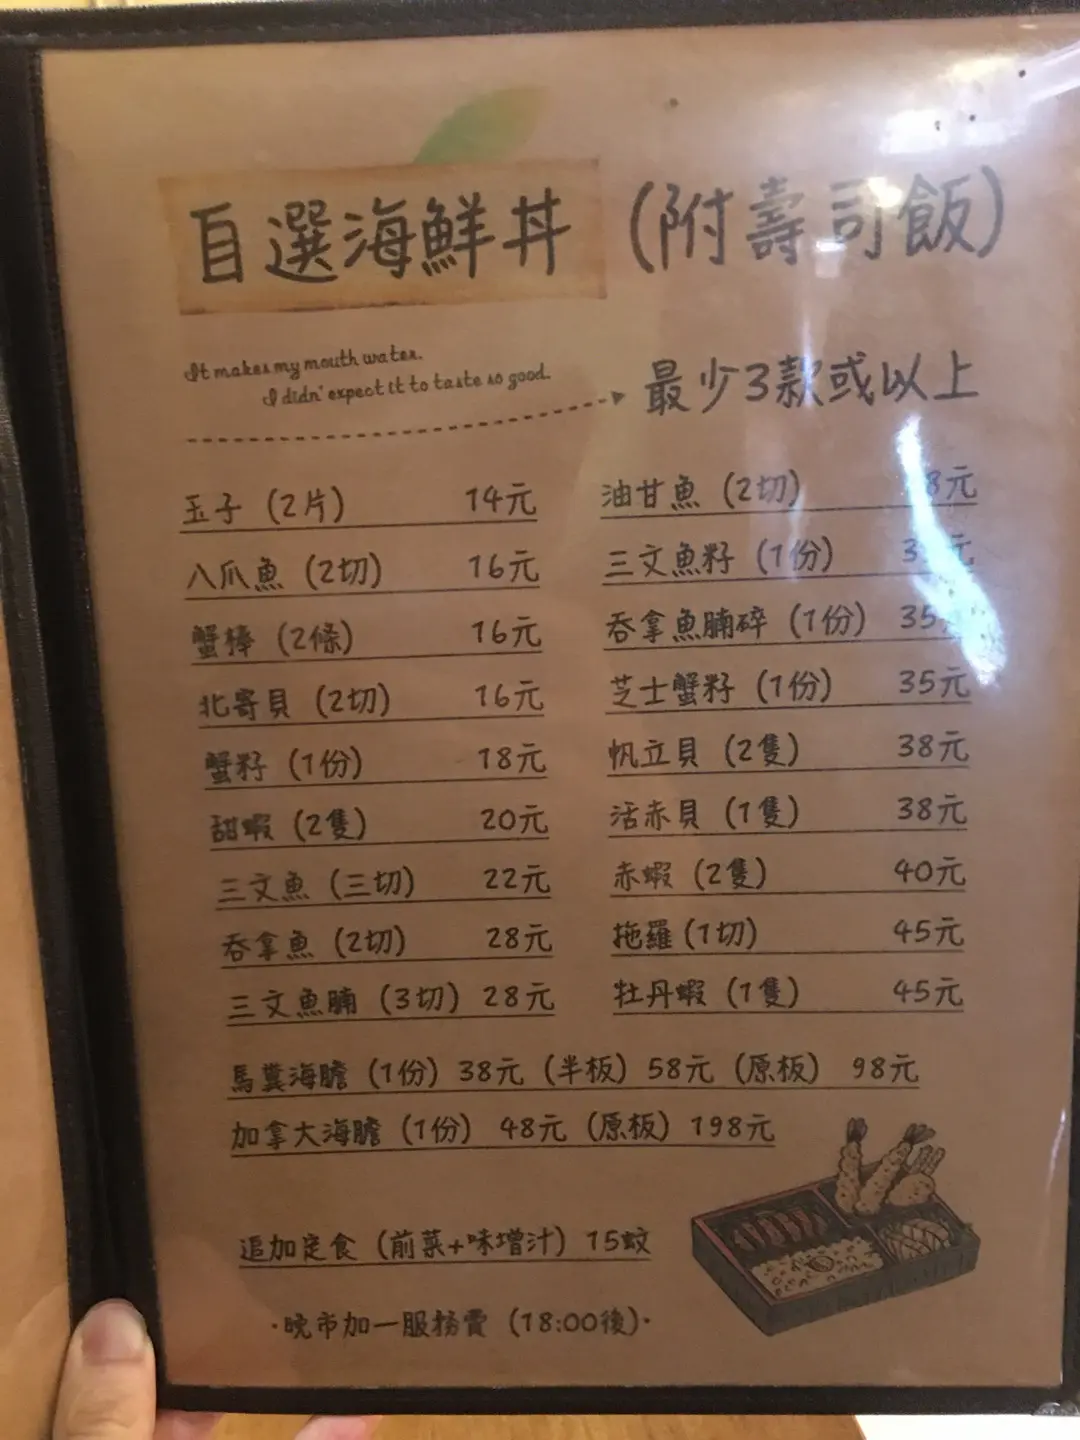 自選海鮮丼（附壽司飯）
It makes my mouth water.
I didn' expect it to taste so good.
最少3款或以上
玉子（2片） 14元
八爪魚（2切） 16元
蟹棒（2條） 16元
北寄貝（2切） 16元
蟹籽（1份） 18元
甜蝦（2隻） 20元
三文魚（三切） 22元
吞拿魚（2切） 28元
三文魚腩（3切） 28元
油甘魚（2切） 元
三文魚籽（1份） 元
吞拿魚腩碎（1份） 35
芝士蟹籽（1份） 35元
帆立貝（2隻） 38元
活赤貝（1隻） 38元
赤蝦（2隻） 40元
拖羅（1切） 45元
牡丹蝦（1隻） 45元
馬糞海膽（1份）38元（半板）58元（原板） 98元
加拿大海膽（1份） 48元（原板）198元
追加定食（前菜+味增汁）15蚊
·晚市加一服務費（18:00後）·